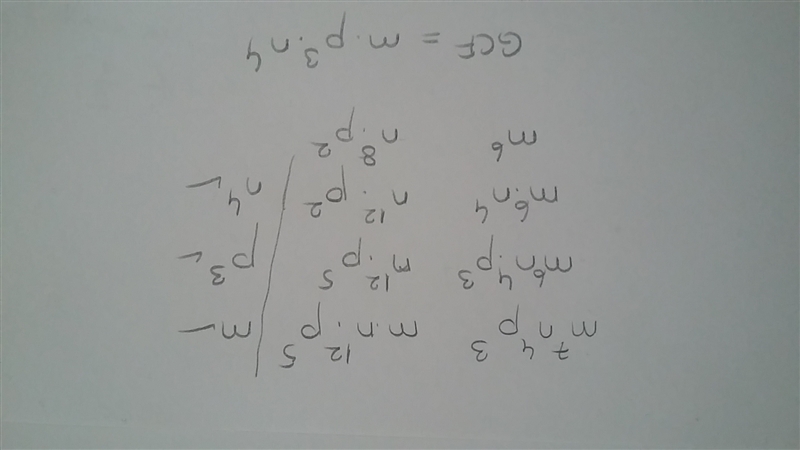 m⁷n⁴p³ m·n¹²·p⁵ | m ✓
m⁶n⁴·p³ m¹²·p⁵ | p³ ✓
m⁶·n⁴ n¹²·p² | n⁴ ✓
m⁶ n⁸·p²
GCF = m·p³·n⁴